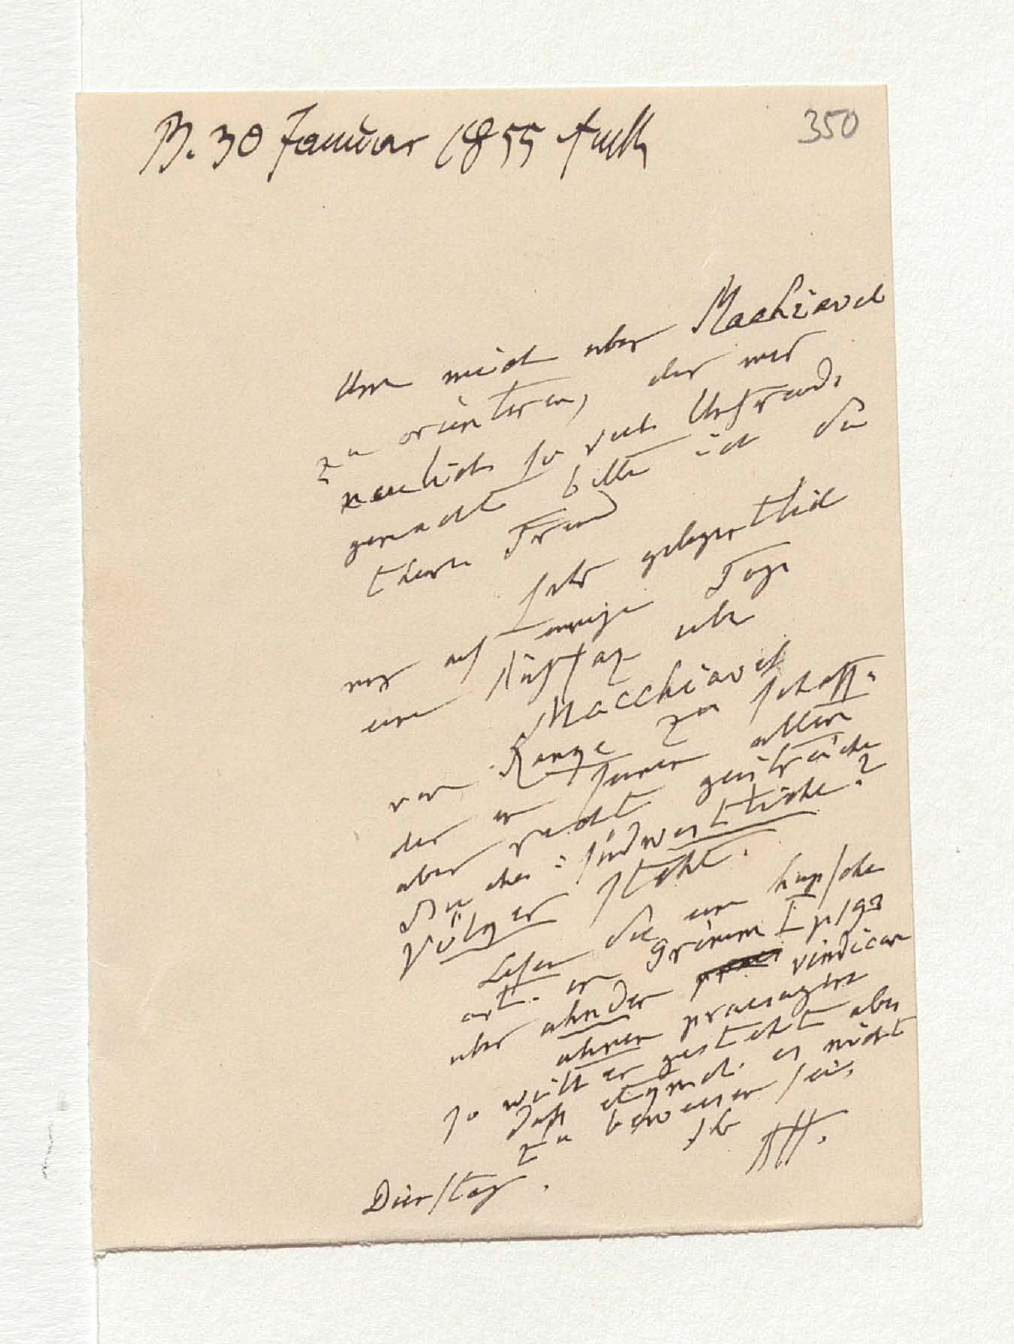 B. 30 Januar 1855 früh
350
Um mich über Machiavel
zu orientiren, der mir
neulich so viel Unfreude
gemacht bitte ich Sie
theurer Freund
sehr gelegentlich
nur auf einige Tage
einen Aufsaz über
Macchiavel
von Ranke zu schaff:
der in seinen allen
aber recht
Sie eher: südwestliche?
Völger steht.
Lesen Sie den hüpschen
art. in Grimm I p 193
über ahnden vindicare
ahnen praesagire
so will er gesteht aber
daß etymol. es nicht
zu beweisen sei,
Ihr
AH.
Dienstag.